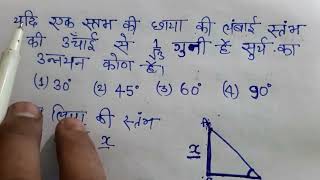 यदि एक स्तम्भ की छाया की लंबाई स्तंभ
की उँचाई से 1/√3 गुनी है सूर्य का
उन्नयन कोण है।
(1) 30° (2) 45° (3) 60° (4) 90°
लिया की स्तंभ
x x